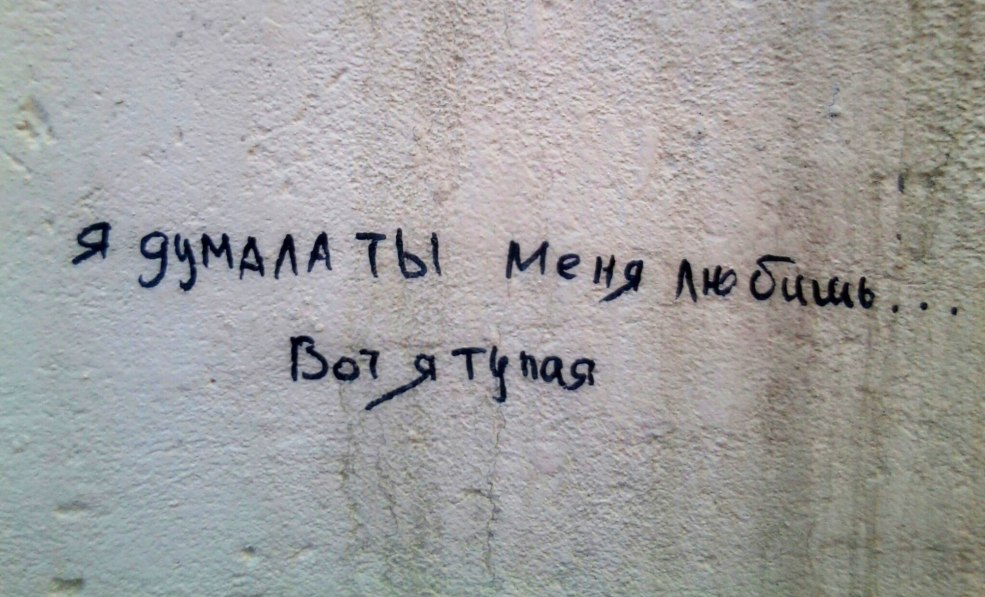 я думАЛА ТЫ меня любишь...
Вот я тупая